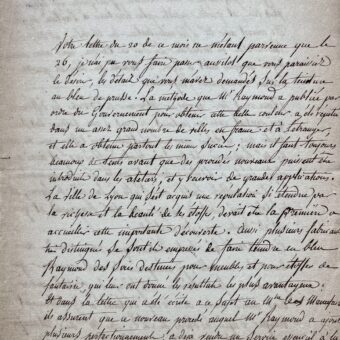 Votre lettre du 20 de ce mois ne m'étant parvenue que le
26, je n'ai pu vous faire passer aussitôt que vous paraissiez
le désirer, les détails que vous m'avez demandés sur la teinture
au bleu de prusse. La méthode que Mr Raymond a publiée par
ordre du Gouvernement pour obtenir cette belle couleur, a été
dans un assez grand nombre de villes, en france et à l'étranger,
et elle a obtenu partout le même succès; mais il faut toujours
beaucoup de tems avant que des procédés nouveaux puissent être
introduits dans les ateliers, et y recevoir de grandes applications.
La ville de Lyon qui s'est acquis une réputation si étendue par
la richesse et la beauté de ses étoffes devait être la première à
accueillir cette importante découverte. Aussi plusieurs fabricans
très distingués se sont empressés de faire teindre en bleu
Raymond des soies destinées pour meubles et pour étoffes de
fantaisie, qui leur ont donné les résultats les plus avantageux.
dans la lettre qui a été écrite à ce sujet au
ils assurent que ce nouveau procédé auquel Mr Raymond a ajouté
plusieurs perfectionnemens a déjà rendu un service